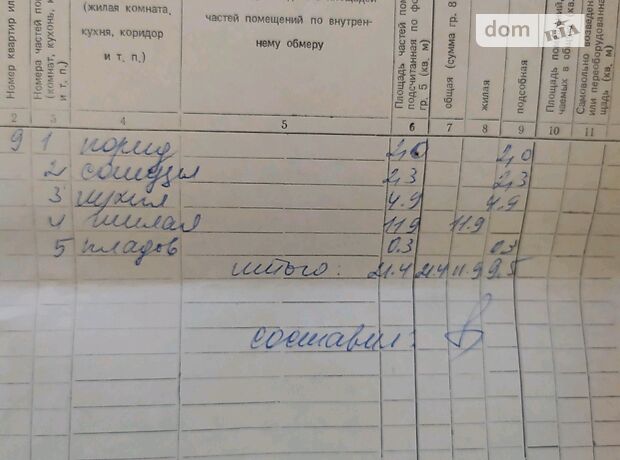 dom RIA
Номер квартир ил
Номера частей по
(комнат, кухонь, к
и т. п.)
(жилая комната,
кухня, коридор
и т. п.)
частей помещений по внутрен-
нему обмеру
Площадь частей пом
подсчитанная по фо
гр. 5 (кв. м)
общая (сумма гр. 8
жилая
подсобная
Площадь по
чаемых в общ
Самовольно возведен
или переоборудованна
щадь (кв. м)
2 3 4 5 6 7 8 9 10 11
9 1 корид 2,0 2,0
2 санузел 2,3 2,3
3 кухня 4.9 4.9
4 жилая 11.9 11.9
5 кладов 0.3 0.3
итого: 21.4 21.4 11.9 9.5
составил: